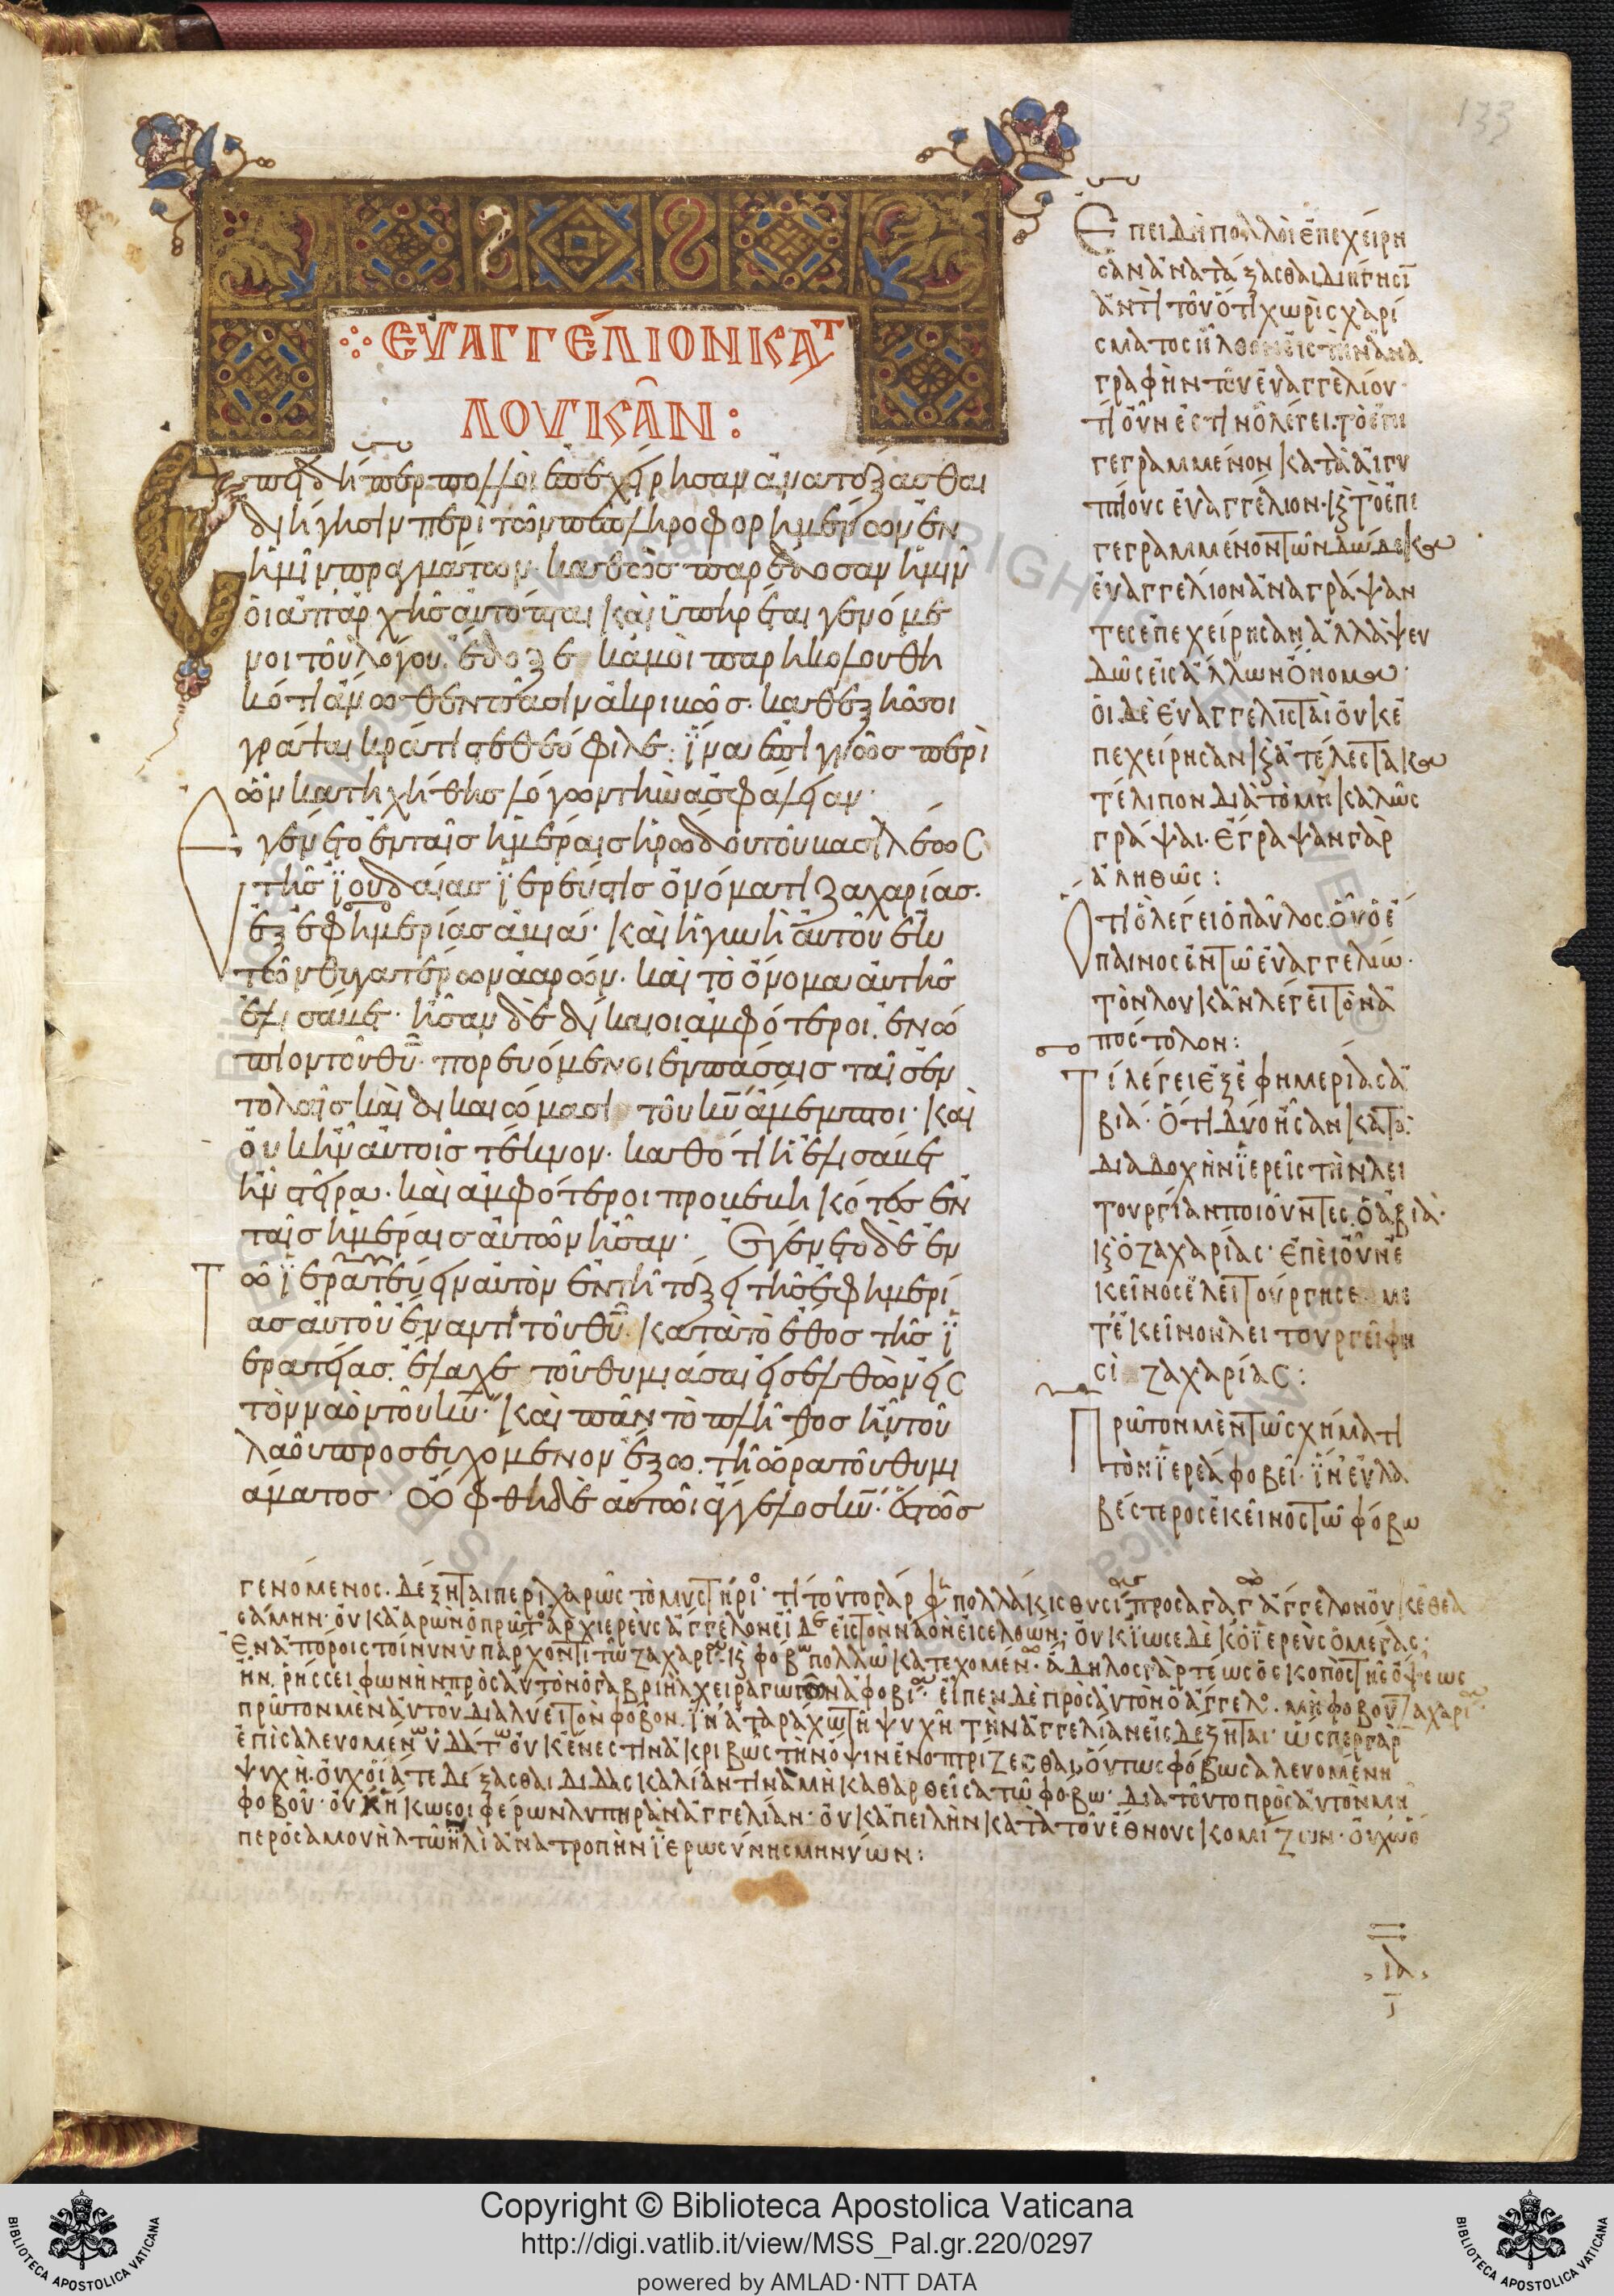 133
ΕΥΑΓΓΕΛΙΟΝ ΚΑΤ
ΛΟΥΚΑΝ :
Ἐπειδήπερ πολλοὶ ἐπεχείρησαν ἀνατάξασθαι
διήγησιν περὶ τῶν πεπληροφορημένων ἐν
ἡμῖν πραγμάτων. καθὼς παρέδοσαν ἡμῖν
οἱ ἀπαρχῆς αὐτόπται καὶ ὑπηρέται γενόμε
νοι τοῦ λόγου. ἔδοξε κἀμοὶ παρηκολουθη
κότι ἄνωθεν πᾶσιν ἀκριβῶς. καθεξῆς σοι
γράψαι κράτιστε θεόφιλε. ἵνα ἐπιγνῶς περὶ
ὧν κατηχήθης λόγων τὴν ἀσφάλειαν.
Ἐγένετο ἐν ταῖς ἡμέραις ἡρώδου τοῦ βασιλέως
τῆς ἰουδαίας ἱερεύς τις ὀνόματι ζαχαρίας.
ἐξ ἐφημερίας ἀβιά. καὶ ἡ γυνὴ αὐτοῦ ἐκ
τῶν θυγατέρων ἀαρών. καὶ τὸ ὄνομα αὐτῆς
ἐλισάβετ. ἦσαν δὲ δίκαιοι ἀμφότεροι. ἐνώ
πιον τοῦ θυ. πορευόμενοι ἐν πάσαις ταῖς ἐν
τολαῖς καὶ δικαιώμασι τοῦ κυ ἄμεμπτοι. καὶ
οὐκ ἦν αὐτοῖς τέκνον. καθότι ἡ ἐλισάβετ
ἦν στεῖρα. καὶ ἀμφότεροι προβεβηκότες ἐν
ταῖς ἡμέραις αὐτῶν ἦσαν. Ἐγένετο δὲ ἐν
τῶ ἱερατεύειν αὐτὸν ἐν τῆ τάξει τῆς ἐφημερί
ας αὐτοῦ ἔναντι τοῦ θυ. κατὰ τὸ ἔθος τῆς ἱ
ερατείας. ἔλαχε τοῦ θυμιάσαι εἰσελθὼν εἰς
τὸν ναὸν τοῦ κυ. καὶ πᾶν τὸ πλῆθος ἦν τοῦ
λαοῦ προσευχόμενον ἔξω. τῆ ὥρα τοῦ θυμι
άματος. ὤφθη δὲ αὐτῶι ἄγγελος κυ. ἑστὼς
Ἐπειδὴ πολλοὶ ἐπεχείρη
σαν ἀνατάξασθαι διήγησῑ
ἀντὶ τοῦ ὅτι χωρὶς χαρί
σματος ἦλθον εἰς τὴν ἀνα
γραφὴν τοῦ εὐαγγελίου.
τί οὖν ἐστὶν ὃ λέγει. τὸ ἐπι
γεγραμμένον κατὰ αἰγυ
πτίους εὐαγγέλιον. κ̀ τὸ ἐπι
γεγραμμένον τῶν δώδεκα
εὐαγγέλιον ἀναγράψαν
τες ἐπεχείρησαν ἀλλὰ ψευ
δῶς εἰς ἄλλων ὄνομα.
οἱ δὲ εὐαγγελισταὶ οὐκ ἐ
πεχείρησαν κ̀ ἀτέλεστα κα
τέλιπον διὰ τὸ μὴ καλῶς
γράψαι. ἔγραψαν γὰρ
ἀληθῶς :
τί ὃ λέγει ὁ παῦλος. οὗ ὁ ἔ
παινος ἐν τῶ εὐαγγελίω.
τὸν λουκᾶν λέγει τὸν ἀ
πόστολον :
Τί λέγει ἐξ ἐφημερίας ἀ
βιά. ὅτι δύο ἦσαν κατὰ
διαδοχὴν ἱερεῖς τὴν λει
τουργίαν ποιοῦντες. ὁ ἀβιὰ.
κ̀ ὁ ζαχαρίας. ἐπεὶ οὖν ἐ
κεῖνος ἐλειτούργησε με
τ' ἐκεῖνον λειτουργεῖ φη
σὶ ζαχαρίας :
Πρῶτον μὲν τῶ σχήματι
τὸν ἱερέα φοβεῖ. ἵν' εὐλα
βέστερος ἐκεῖνος τῶ φόβω
γενόμενος. δέξηται περιχαρῶς τὸ μυστήριο. τί τοῦτο γάρ φ πολλάκις θυσι προσαγαγ ἄγγελον οὐκ ἐθεα
σάμην. οὐκ ἀαρὼν ὁ πρῶτ ἀρχιερεὺς ἄγγελον εἶδε εἰς τὸν ναὸν εἰσελθών; οὐκ ἰωσεδὲκ ὁ ἱερεὺς ὁ μέγας;
Ἐν ἀπόροις τοίνυν ὑπάρχοντι τῶ ζαχαρι κ̀ φόβ πολλῶ κατεχομέν. ἄδηλος γὰρ τέως ὁ σκοπὸς τῆς ὄψεως
ἦν. ῥήσσει φωνὴν πρὸς αὐτὸν ὁ γαβριὴλ χειραγωγὸν ἀφοβι. εἶπεν δὲ πρὸς αὐτὸν ὁ ἄγγελο. μὴ φοβοῦ ζαχαρι
πρῶτον μὲν αὐτοῦ διαλύει τὸν φόβον. ἵν' ἀταράχω τῆ ψυχῆ τὴν ἀγγελίαν εἰσδέξηται. ὥσπερ γὰρ
ἐπὶ σαλευομέν ὕδατ οὐκ ἔνεστιν ἀκριβῶς τὴν ὄψιν ἐνοπτρίζεσθαι. οὕτως φόβω σαλευομένη
ψυχὴ. οὐχ οἵα τε δέξασθαι διδασκαλίαν τινὰ μὴ καθαρθεῖσα τῶ φόβω. διὰ τοῦτο πρὸς αὐτὸν μὴ
φοβοῦ. οὐχ ἥκω σοι φέρων λυπηρὰν ἀγγελίαν. οὐκ ἀπειλὴν κατὰ τοῦ ἔθνους κομίζων. οὐχ ὥσ
περ ὁ σαμουὴλ τῶ ἠλὶ ἀνατροπὴν ἱερωσύνης μηνύων :
ιδ
Copyright © Biblioteca Apostolica Vaticana
http://digi.vatlib.it/view/MSS_Pal.gr.220/0297
powered by AMLAD·NTT DATA
BIBLIOTECA APOSTOLICA VATICANA
BIBLIOTECA APOSTOLICA VATICANA